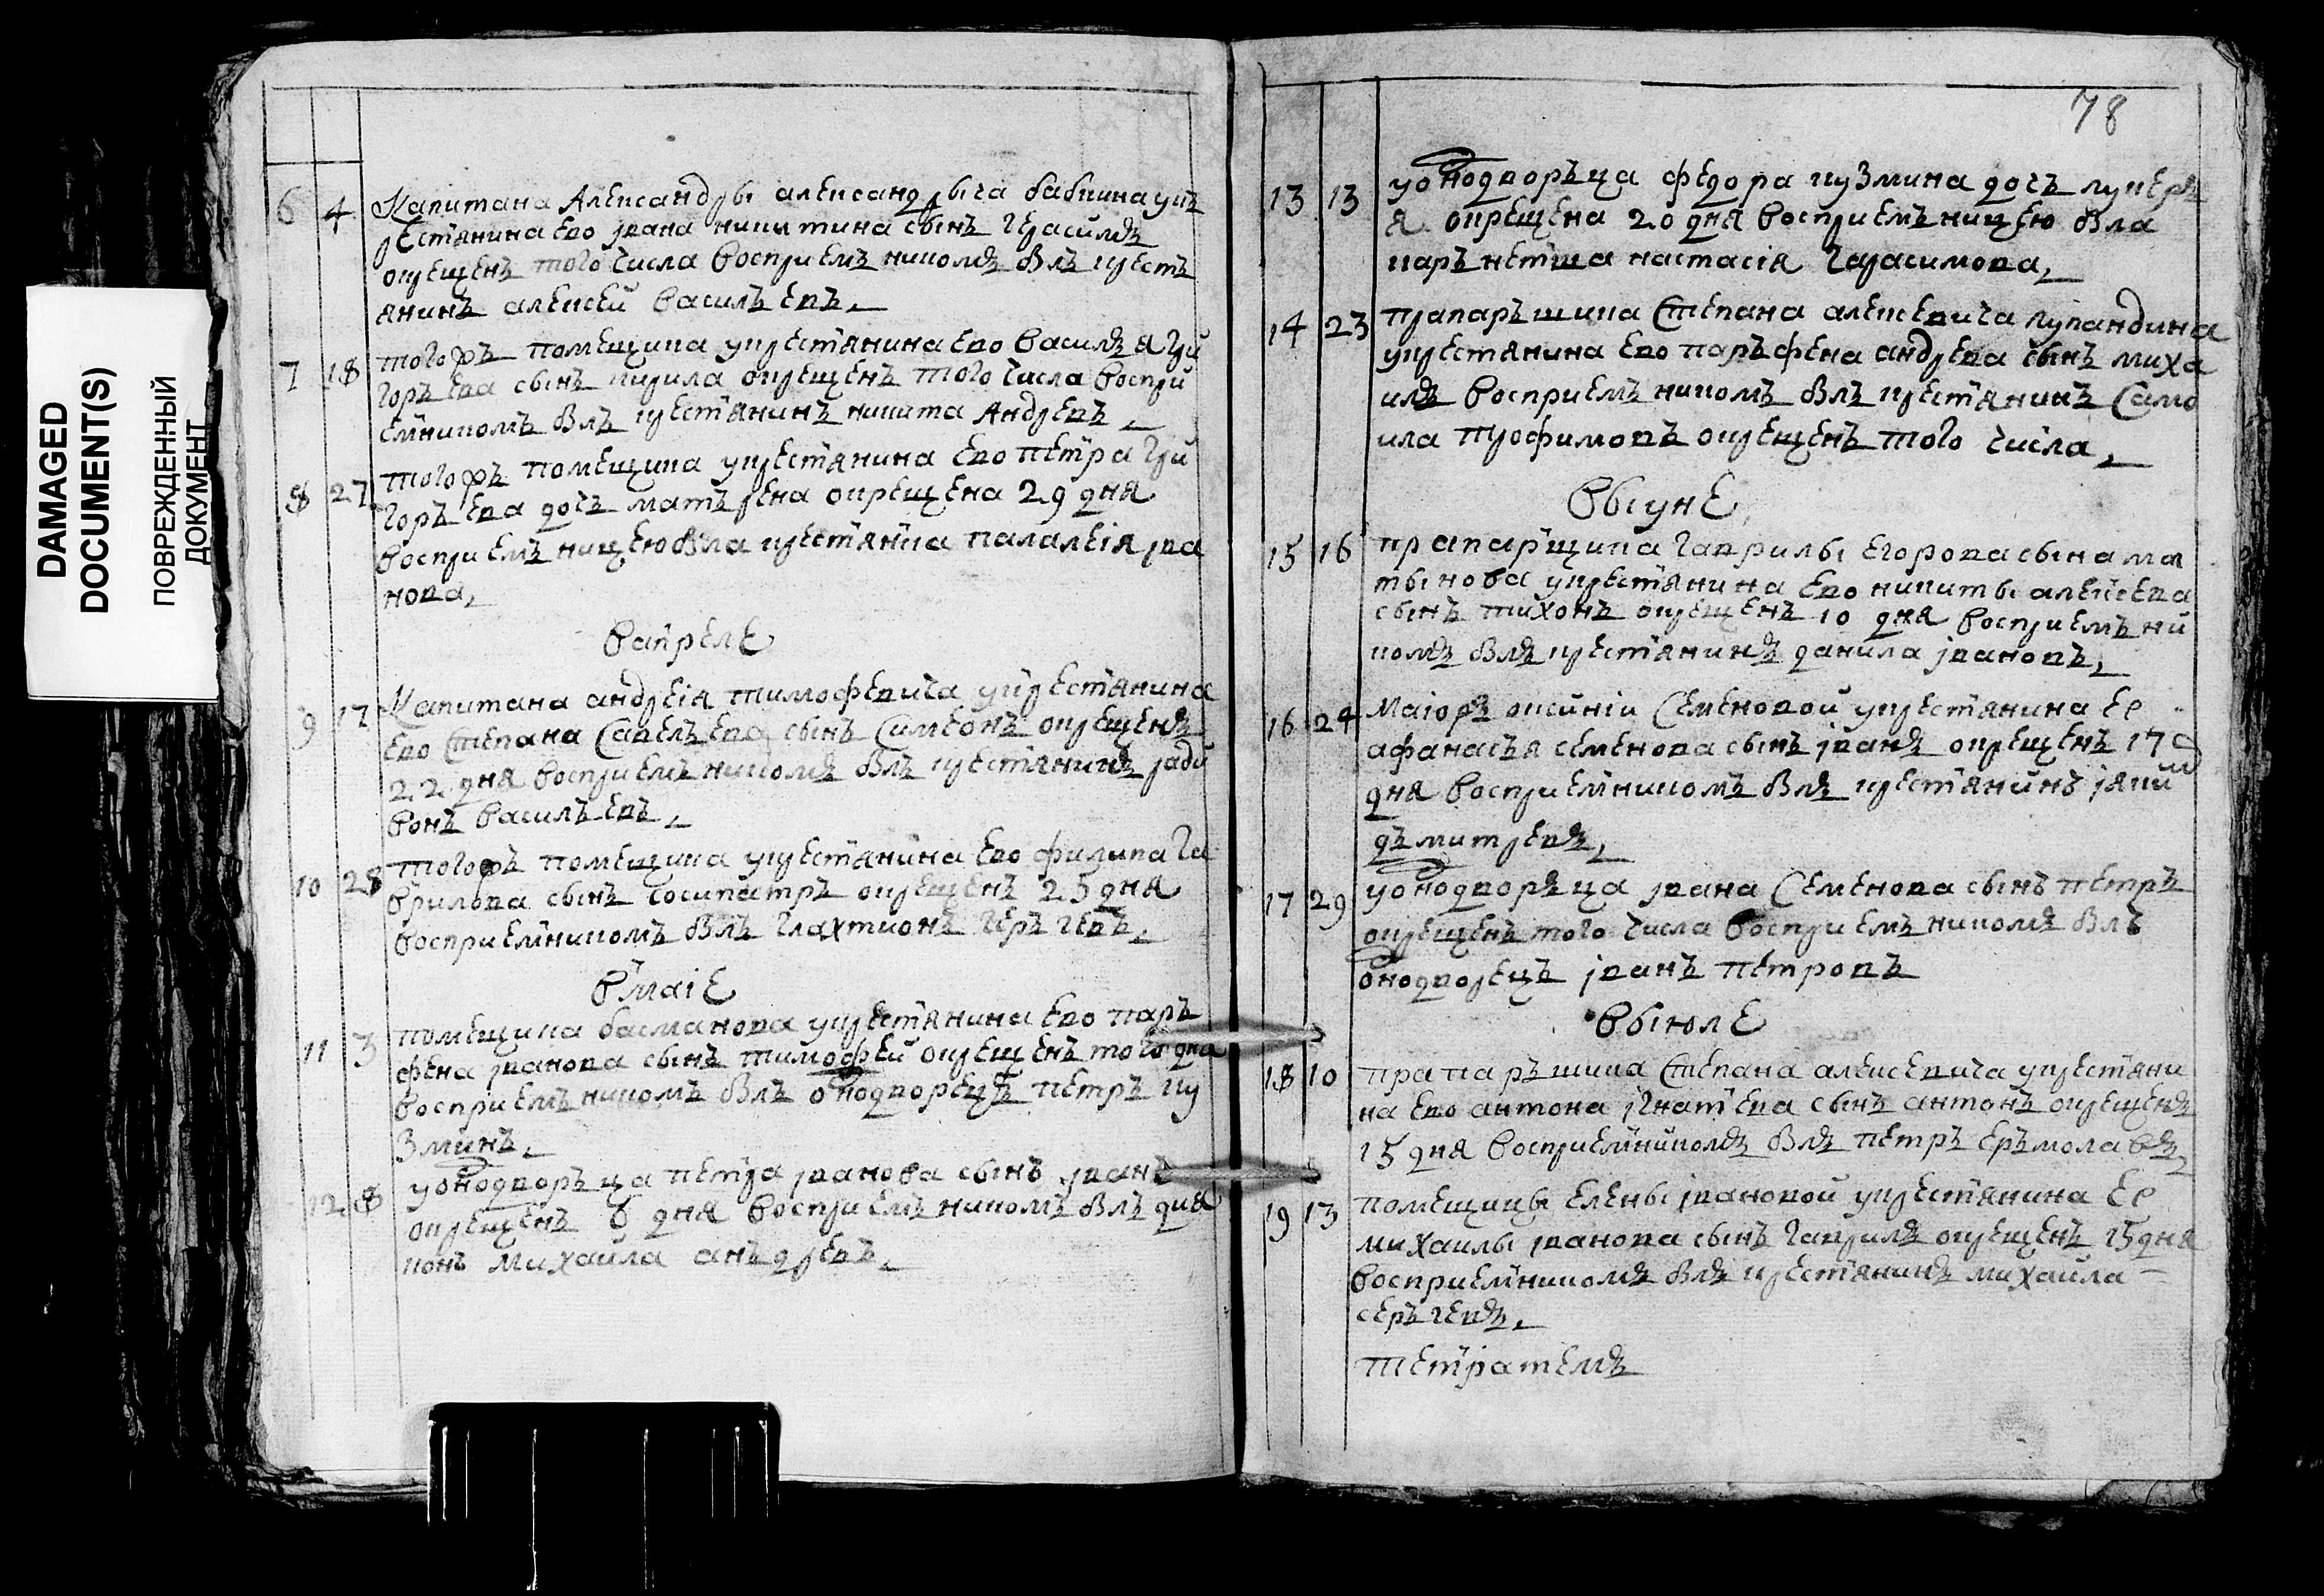 DAMAGED
DOCUMENT(S)
ПОВРЕЖДЕННЫЙ
ДОКУМЕНТ
6 4 Капитана Александры александрыча бабкина укъ
рестянина ево iвана никитина сынъ герасимъ
окрещенъ того числа восприемъникомъ былъ крестъ
янинъ алексей василъевъ,
7 18 тогожъ помещика укрестянина ево василъя гри
горъева сынъ кирила окрещенъ того числа воспри
емникомъ былъ крестянинъ никита Андревъ,
8 27 тогожъ помещика укрестянина ево петра гри
горъева дочъ матърена окрещена 29 дня
восприемъницею была крестянка палагеiя iва
нова,
Вапреле
9 17 Капитана андреiя тимофевича укрестянина
ево степана савелъева сынъ Симеонъ окрещенъ
22 дня восприемъникомъ былъ крестянинъ
василъевъ,
10 28 тогожъ помещика укрестянина ево филипа га
врилова сынъ сосипатръ окрещенъ 25 дня
восприемникомъ былъ галахтионъ
Вмаiе
11 3 помещика басманова укрестянина ево паръ
фена iванова сынъ тимофей окрещенъ того дня
восприемъникомъ былъ однодворецъ петръ ку
зминъ,
12 8 уоднодворъца петра iванова сынъ iванъ
окрещенъ дня восприемъникомъ былъ дия
конъ михаила анъдревъ,
78
13 13 уоднодворъца федора кузмина дочъ лукеръ
я окрещена 20 дня восприемъницею была
настасiя гарасимова,
14 23 прапаръшика Степана алексевича лупандина
укрестянина ево паръфена андрева сынъ миха
илъ восприемъникомъ былъ крестянинъ само
ила трофимовъ окрещенъ того числа,
Выуне
15 16 прапарщика гаврилы егорова сына ма
тынова укрестянина ево никиты алексева
сынъ тихонъ окрещенъ 10 дня восприемъни
комъ былъ крестянинъ данила iвановъ,
16 24 Маiоръ Семеновой укрестянина ее
афанасъя семенова сынъ iванъ окрещенъ 17
дня восприемникомъ былъ крестянинъ
дъмитревъ,
17 29 уоднодворъца iвана Семенова сынъ петръ
окрещенъ того числа восприемъникомъ былъ
однодворецъ iванъ петровъ
Выюле
18 10 прапаръшика Степана алексевича укрестяни
на ево антона iгнатева сынъ антонъ окрещенъ
15 дня восприемникомъ былъ петръ еръмолавъ,
19 13 помещицы елены iвановой укрестянина ее
михаилы iванова сынъ гаврилъ окрещенъ 15 дня
восприемникомъ былъ крестянинъ михаила
серъгевъ,